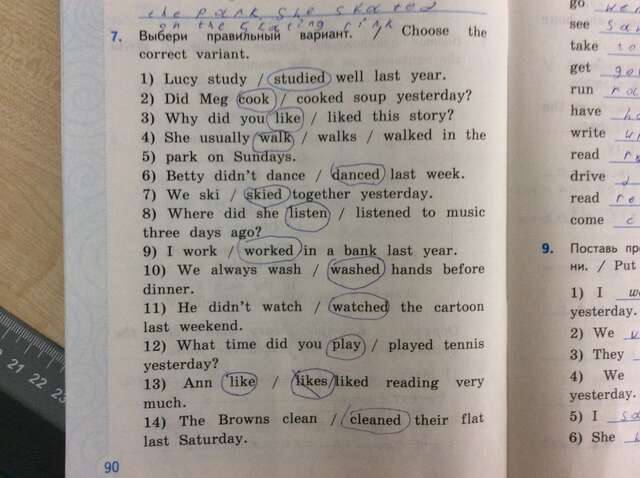 the park she skated
on the skating rink
7. Выбери правильный вариант. / Choose the
correct variant.
1) Lucy study / studied well last year.
2) Did Meg cook / cooked soup yesterday?
3) Why did you like / liked this story?
4) She usually walk / walks / walked in the
5) park on Sundays.
6) Betty didn't dance / danced last week.
7) We ski / skied together yesterday.
8) Where did she listen / listened to music
three days ago?
9) I work / worked in a bank last year.
10) We always wash / washed hands before
dinner.
11) He didn't watch / watched the cartoon
last weekend.
12) What time did you play / played tennis
yesterday?
13) Ann like / likes/liked reading very
much.
14) The Browns clean / cleaned their flat
last Saturday.
90
go
see
take
get
run
have
write
read
drive
read
come
9. Поставь
ни. / Put
1) I
yesterday.
2) We
3) They
4) We
yesterday.
5) I
6) She
21 22 23